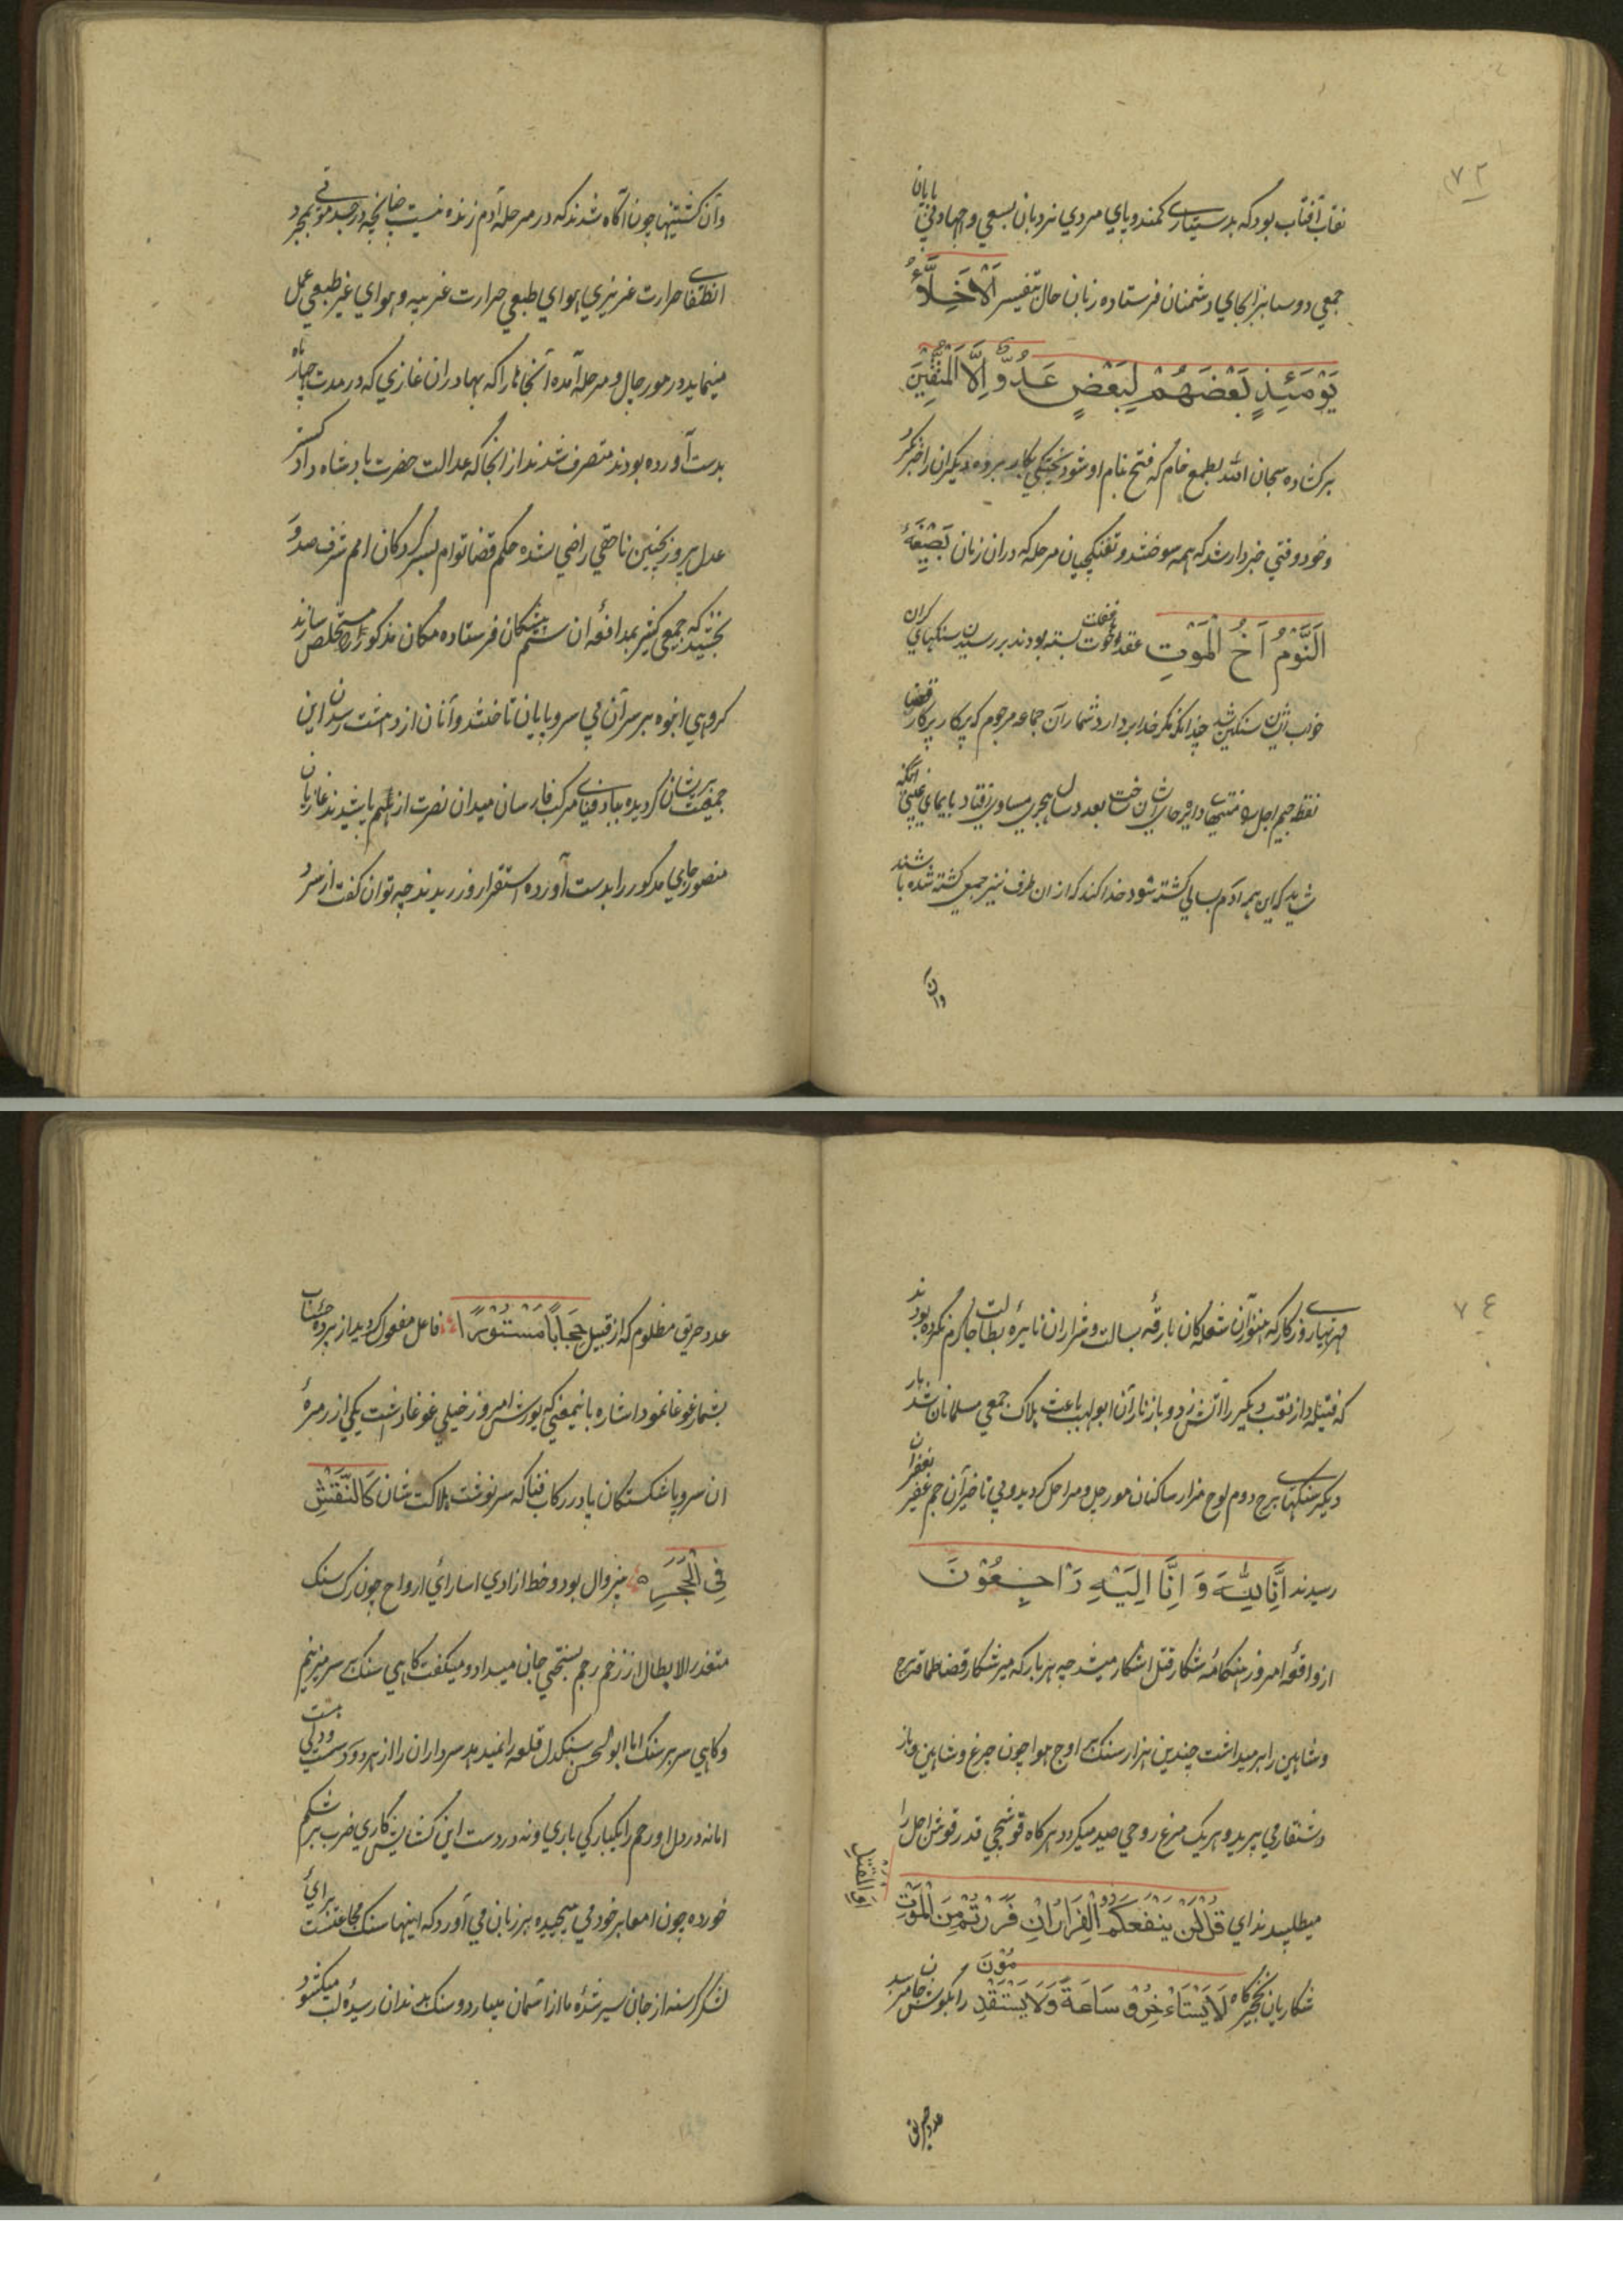 ۷۲
نقاب آفتاب بود که بدستیاری کمند و پای مردی نردبان بسعی و جهاد بی پایان
جمعی دوستانرا بجای دشمنان فرستاده زبان حال بتفسیر اَلْاَخِلَّاءُ
یَوْمَئِذٍ بَعْضُهُمْ لِبَعْضٍ عَدُوٌّ اِلَّا الْمُتَّقِیْنَ
برکشاده سبحان الله بطمع خام که فتح بنام او شود پختکی بکار برده دیکران را خبر نکرد
و خود وقتی خبردار شد که همه سوختند و تفنکچیان مرحله که دران زمان بصیغهٔ
اَلنَّوْمُ اَخُ الْمَوْتِ عقد اخوت با غفلت بسته بودند بر رسیدن سنکهای کران
خواب شان سنکین شد چنانکه مکر خدا بردارد شمار آن جماعه مرحوم که پرکار پرکار قضا
نقطه جیم اجل را منتهای دایره حیات شان ساخت بعدد سال هجری مساوی افتاد بایمای غیبی آنکه
شاید که این همه آدم بسالی کشته شود خدا کند که ازان طرف نیز جمعی کشته شده باشند
وآن
وآن کشتیها چون آکاه شدند که در مرحله آدم زنده نیست چنانچه در جسد موتی بمجرد
انطفای حرارت غریزی و هوای طبعی حرارت غریبه و هوای غیر طبعی عمل
مینماید در مورچال و مرحله آمده آنجاها را که بهادران غازی که در مدت چهار ماه
بدست آورده بودند متصرف شدند از انجا که عدالت حضرت بادشاه دادکستر
عدل پرور بچنین ناحقی راضی نشده حکم قضا توام بسرکردکان امم شرف صدور
بخشید که جمعی کثیر بمدافعهٔ ان ستم پیشکان فرستاده مکان مذکور را مستخلص سازند
کروهی انبوه بر سر آن بی سر و پایان تاختند و آنان از دهشت رسیدن این
جمعیت پریشان کردیده بباد فنای مرکب فارسان میدان نصرت از هم پاشیدند غازیان
منصور جای مذکور را بدست آورده استقرار ورزیدند چه توان کفت از سرد
۷٤
مهریهای روزکار که هنوز آن شعله کان بارقهٔ بسالت و شراران نایرهٔ بطالت جا کرم نکرده بودند
که فتیله دار نقب دیکر را آتش زد و باز نار آن ابولهب باعث هلاک جمعی مسلمانان شد بار
دیکر سنکهای برج دوم لوح مزار ساکنان مورچل و مراحل کردید و بی تاخیر آن جم غفیر بغفران
رسیدند اِنَّا لِلّٰهِ وَ اِنَّا اِلَیْهِ رَاجِعُوْنَ
از واقعهٔ امروز هنکامهٔ شکار قتل آشکار میشد چه هر بار که میر شکار قضا طماقه چرخ
و شاهین را برمیداشت چندین هزار سنک بر اوج هوا چون چرغ و شاهین و باز
و شنقار می پرید و هر یک مرغ روحی صید میکرد و هرکاه قوشچی قدر قوش اجل را
میطلبید ندای قُلْ لَنْ یَنْفَعَکُمُ الْفِرَارُ اِنْ فَرَرْتُمْ مِنَ الْمَوْتِ
اَوِ الْقَتْلِ
شکاریان نخجیرکاه لَا یَسْتَاْخِرُوْنَ سَاعَةً وَلَا یَسْتَقْدِمُوْنَ را بکوش جان میرسید
عدد حریق
عدد حریق مظلوم که از قبیل حِجَابًا مَسْتُوْرًا فاعل مفعول کردید از پرده حساب
بشمار غوغا نمود اشاره باینمعنی که یورش امروز خیلی غوغا داشت یکی از زمرهٔ
ان سر و پا شکستکان پا در رکاب فنا که سرنوشت هلاکت شان کَالنَّقْشِ
فِی الْحَجَرِ بیزوال بود و خط ازادی اسارای ارواح چون رک سنک
متعذر الابطال از زخم رجم بسختی جان میداد و میکفت کاهی سنک بر سر میزنیم
و کاهی سر بر سنک اما ابوالحسن سنکدل قلعه را نمیدهد سرداران را از هر دو دست و دلی هست
اما نه در دل او رحم را یکبارکی باری و نه در دست این کشایش کاری ضرب بر شکم
خورده چون امعا بر خود می پیچیده بر زبان می آورد که اینها سنک مجاعتست برای
لشکر کرسنه از جان سیر شده ما از آسمان میبارد و سنک بدندان رسیده لب میکشود